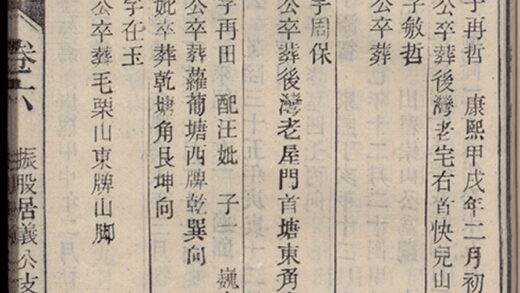 字再哲 康熙甲戌年二月初
公卒葬後灣老宅右首快兒山
字敏哲
公卒葬
字周保
公卒葬後灣老屋門首塘東角
字再田 配汪妣 子 巍
公卒葬蘿蔔塘西牌乾巽向
妣卒葬乾塘角艮坤向
字在玉
公卒葬毛栗山東牌山脚
卷六 振股居義公支